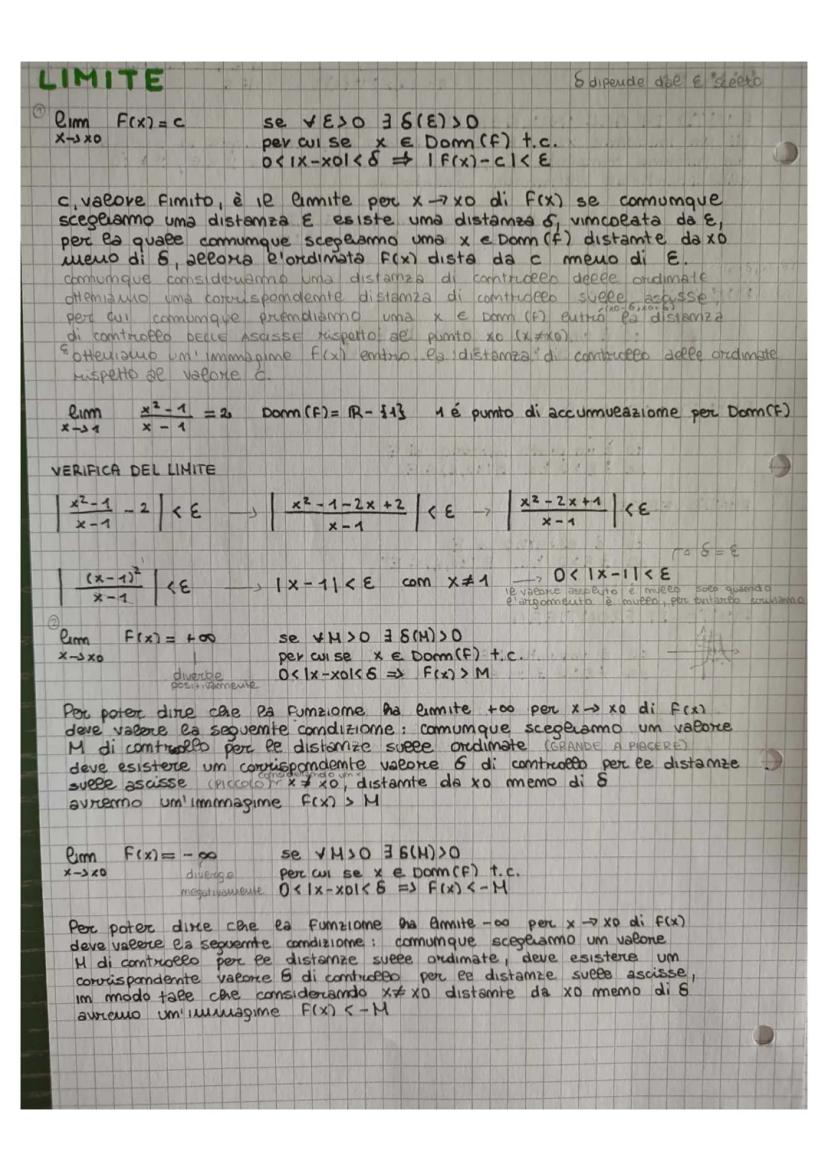 LIMITE
δ dipende dal ε scelto
① lim F(x) = c se ∀ ε>0 ∃ δ(ε)>0
x→x0 per cui se x ∈ Dom(F) t.c.
0<|x-x0|<δ ⇒ |F(x)-c|<ε
c, valore finito, è il limite per x→x0 di F(x) se comunque
scegliamo una distanza ε esiste una distanza δ, vincolata da ε,
per la quale comunque scegliamo una x ∈ Dom(f) distante da x0
meno di δ, allora l'ordinata F(x) dista da c meno di ε.
comunque consideriamo una distanza di controllo delle ordinate
otteniamo una corrispondente distanza di controllo sulle ascisse,
per cui comunque prendiamo una x ∈ Dom(F) entro la distanza
di controllo DELLE ASCISSE rispetto al punto x0 (x≠x0)
otteniamo un'immagine F(x) entro la distanza di controllo delle ordinate
rispetto al valore c.
lim x²-1 / x-1 = 2 Dom(F)= R-{1} 1 é punto di accumulazione per Dom(F)
x→1
VERIFICA DEL LIMITE
|x²-1 / x-1 - 2| < ε → |x²-1-2x+2 / x-1| < ε → |x²-2x+1 / x-1| < ε
δ = ε
|(x-1)² / x-1| < ε → |x-1| < ε con x≠1 → 0<|x-1|<ε
il valore assoluto è nullo solo quando
l'argomento è nullo, per
② lim F(x) = +∞ se ∀M>0 ∃ δ(M)>0
x→x0 per cui se x ∈ Dom(F) t.c.
diverge 0<|x-x0|<δ ⇒ F(x)>M
positivamente
Per poter dire che la funzione ha limite +∞ per x→x0 di F(x)
deve valere la seguente condizione: comunque scegliamo un valore
M di controllo per le distanze sulle ordinate (GRANDE A PIACERE)
deve esistere un corrispondente valore δ di controllo per le distanze
considerando un
sulle ascisse (PICCOLO) x≠x0, distante da x0 meno di δ
avremo un'immagine F(x) > M
lim F(x) = -∞ se ∀M>0 ∃ δ(M)>0
x→x0 diverge per cui se x ∈ Dom(F) t.c.
negativamente 0<|x-x0|<δ ⇒ F(x)<-M
Per poter dire che la funzione ha limite -∞ per x→x0 di F(x)
deve valere la seguente condizione: comunque scegliamo un valore
M di controllo per le distanze sulle ordinate, deve esistere un
corrispondente valore δ di controllo per le distanze sulle ascisse,
in modo tale che considerando x≠x0 distante da x0 meno di δ
avremo un'immagine F(x) < -M